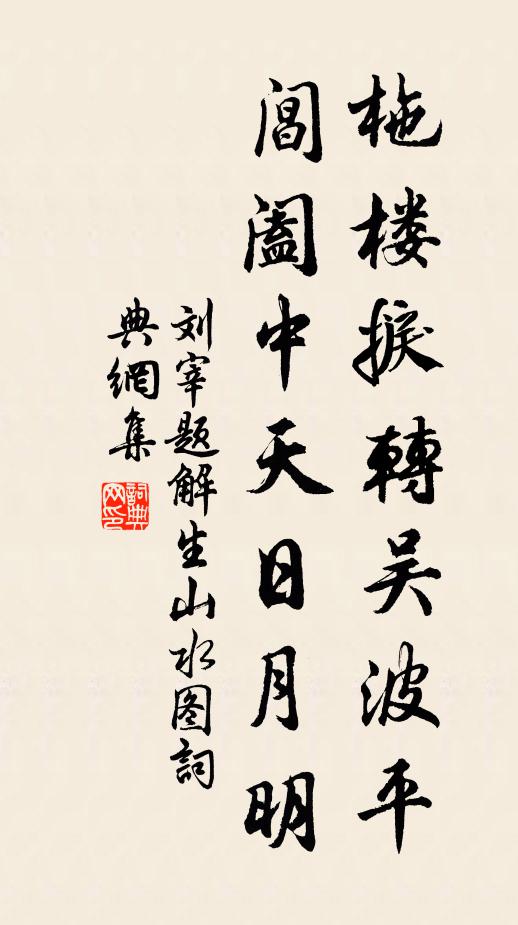 柂楼捩轉吴波平
閶阖中天日月明
刘宰题解生山水图詞
典網集
詞典网印